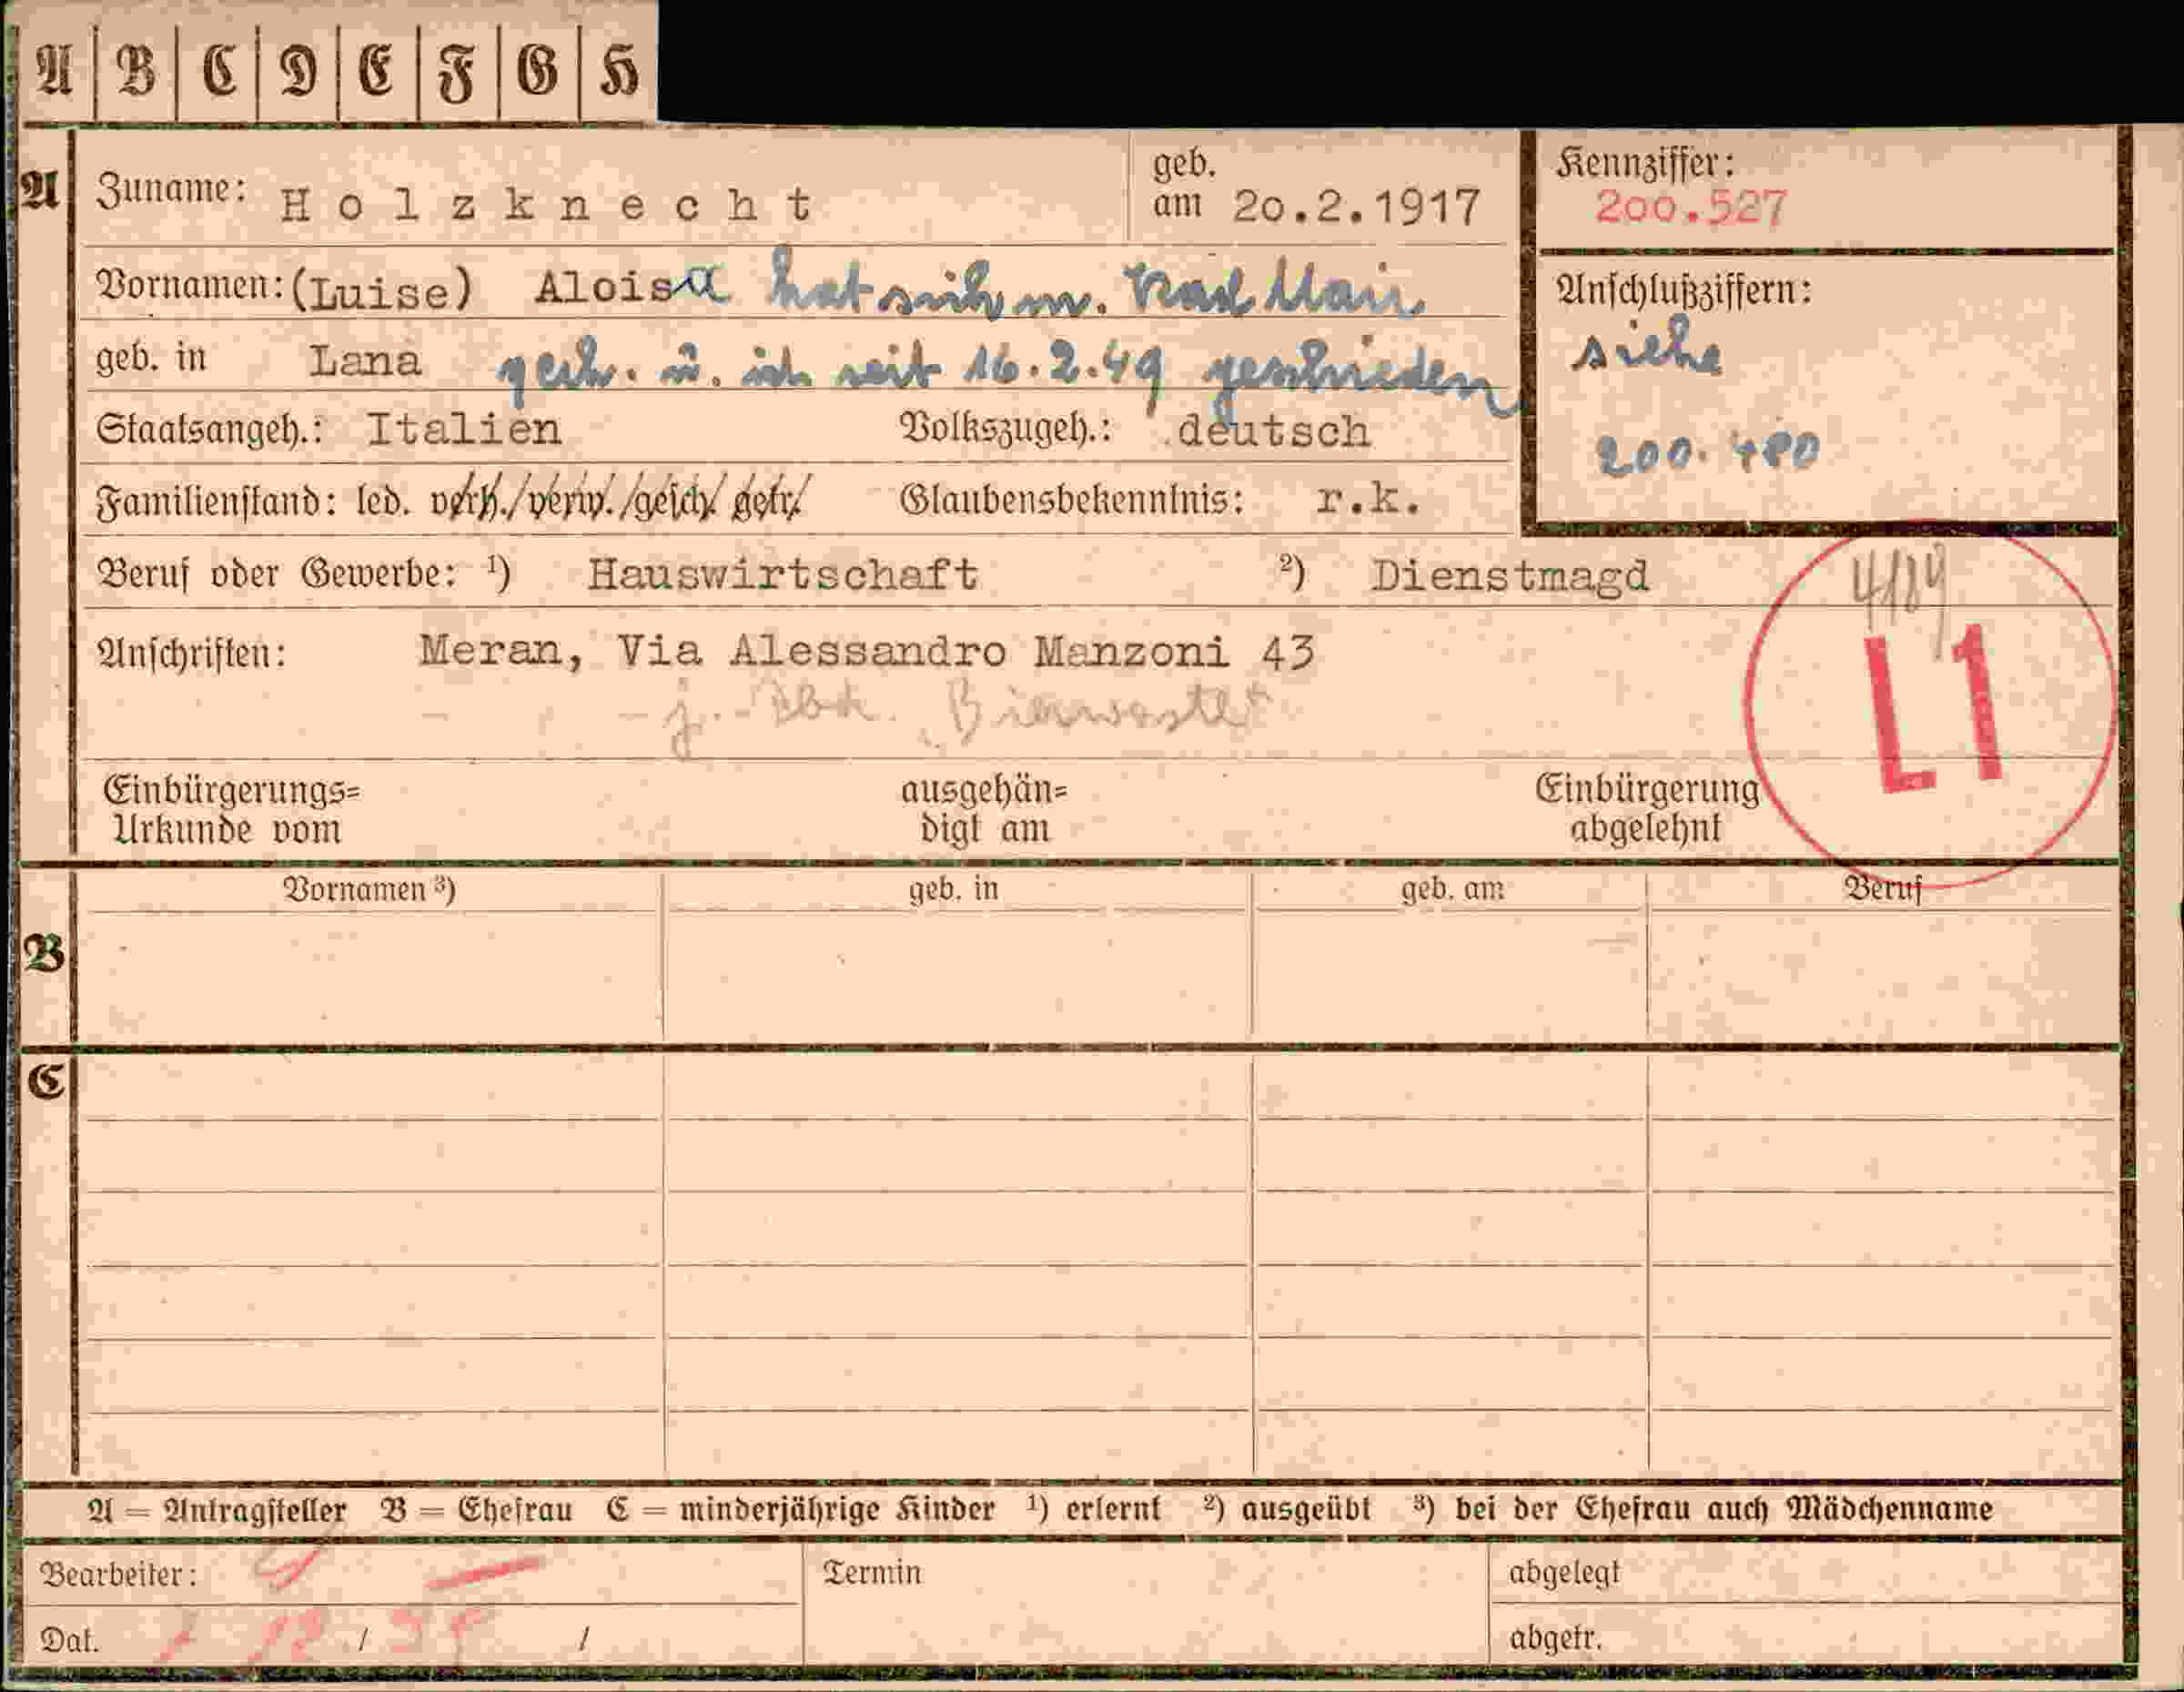 A B C D E F G H
A
Zuname: Holzknecht
geb. am 20.2.1917
Kennziffer: 200.527
Vornamen: (Luise) Aloisa hat sich m. Karl Mair
Anschlußziffern:
siehe
geb. in Lana gesch. u. ist seit 16.2.49 geschieden
200.480
Staatsangeh.: Italien Volkszugeh.: deutsch
Familienstand: led. verh./verw./gesch/ getr/ Glaubensbekenntnis: r.k.
Beruf oder Gewerbe: ¹) Hauswirtschaft ²) Dienstmagd
Anschriften: Meran, Via Alessandro Manzoni 43
L1
Einbürgerungs=
Urkunde vom
ausgehän=
digt am
Einbürgerung
abgelehnt
B
Vornamen ³) geb. in geb. am Beruf
C
A = Antragsteller B = Ehefrau C = minderjährige Kinder ¹) erlernt ²) ausgeübt ³) bei der Ehefrau auch Mädchenname
Bearbeiter:
Termin
abgelegt
Dat. / /
abgetr.